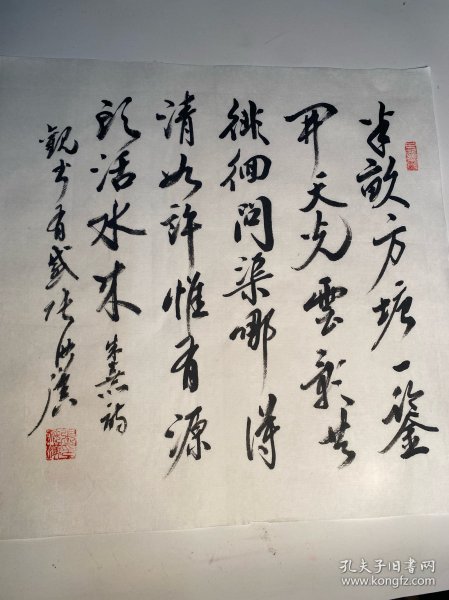 半畝方塘一鑒
开天光雲影共
徘徊問渠哪得
清如許惟有源
頭活水来 朱熹詩
觀书有感 张洪
孔夫子旧书网
www.kongfz.com